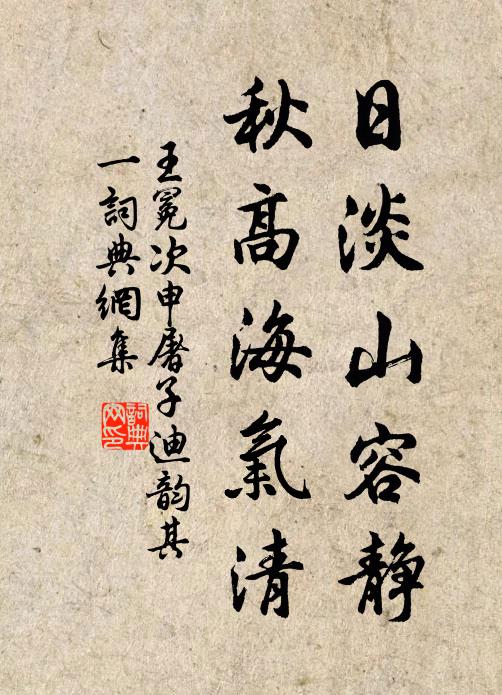 日淡山容静
秋高海氣清
王冕次申屠子迪韵其
一詞典網集
詞典
网印